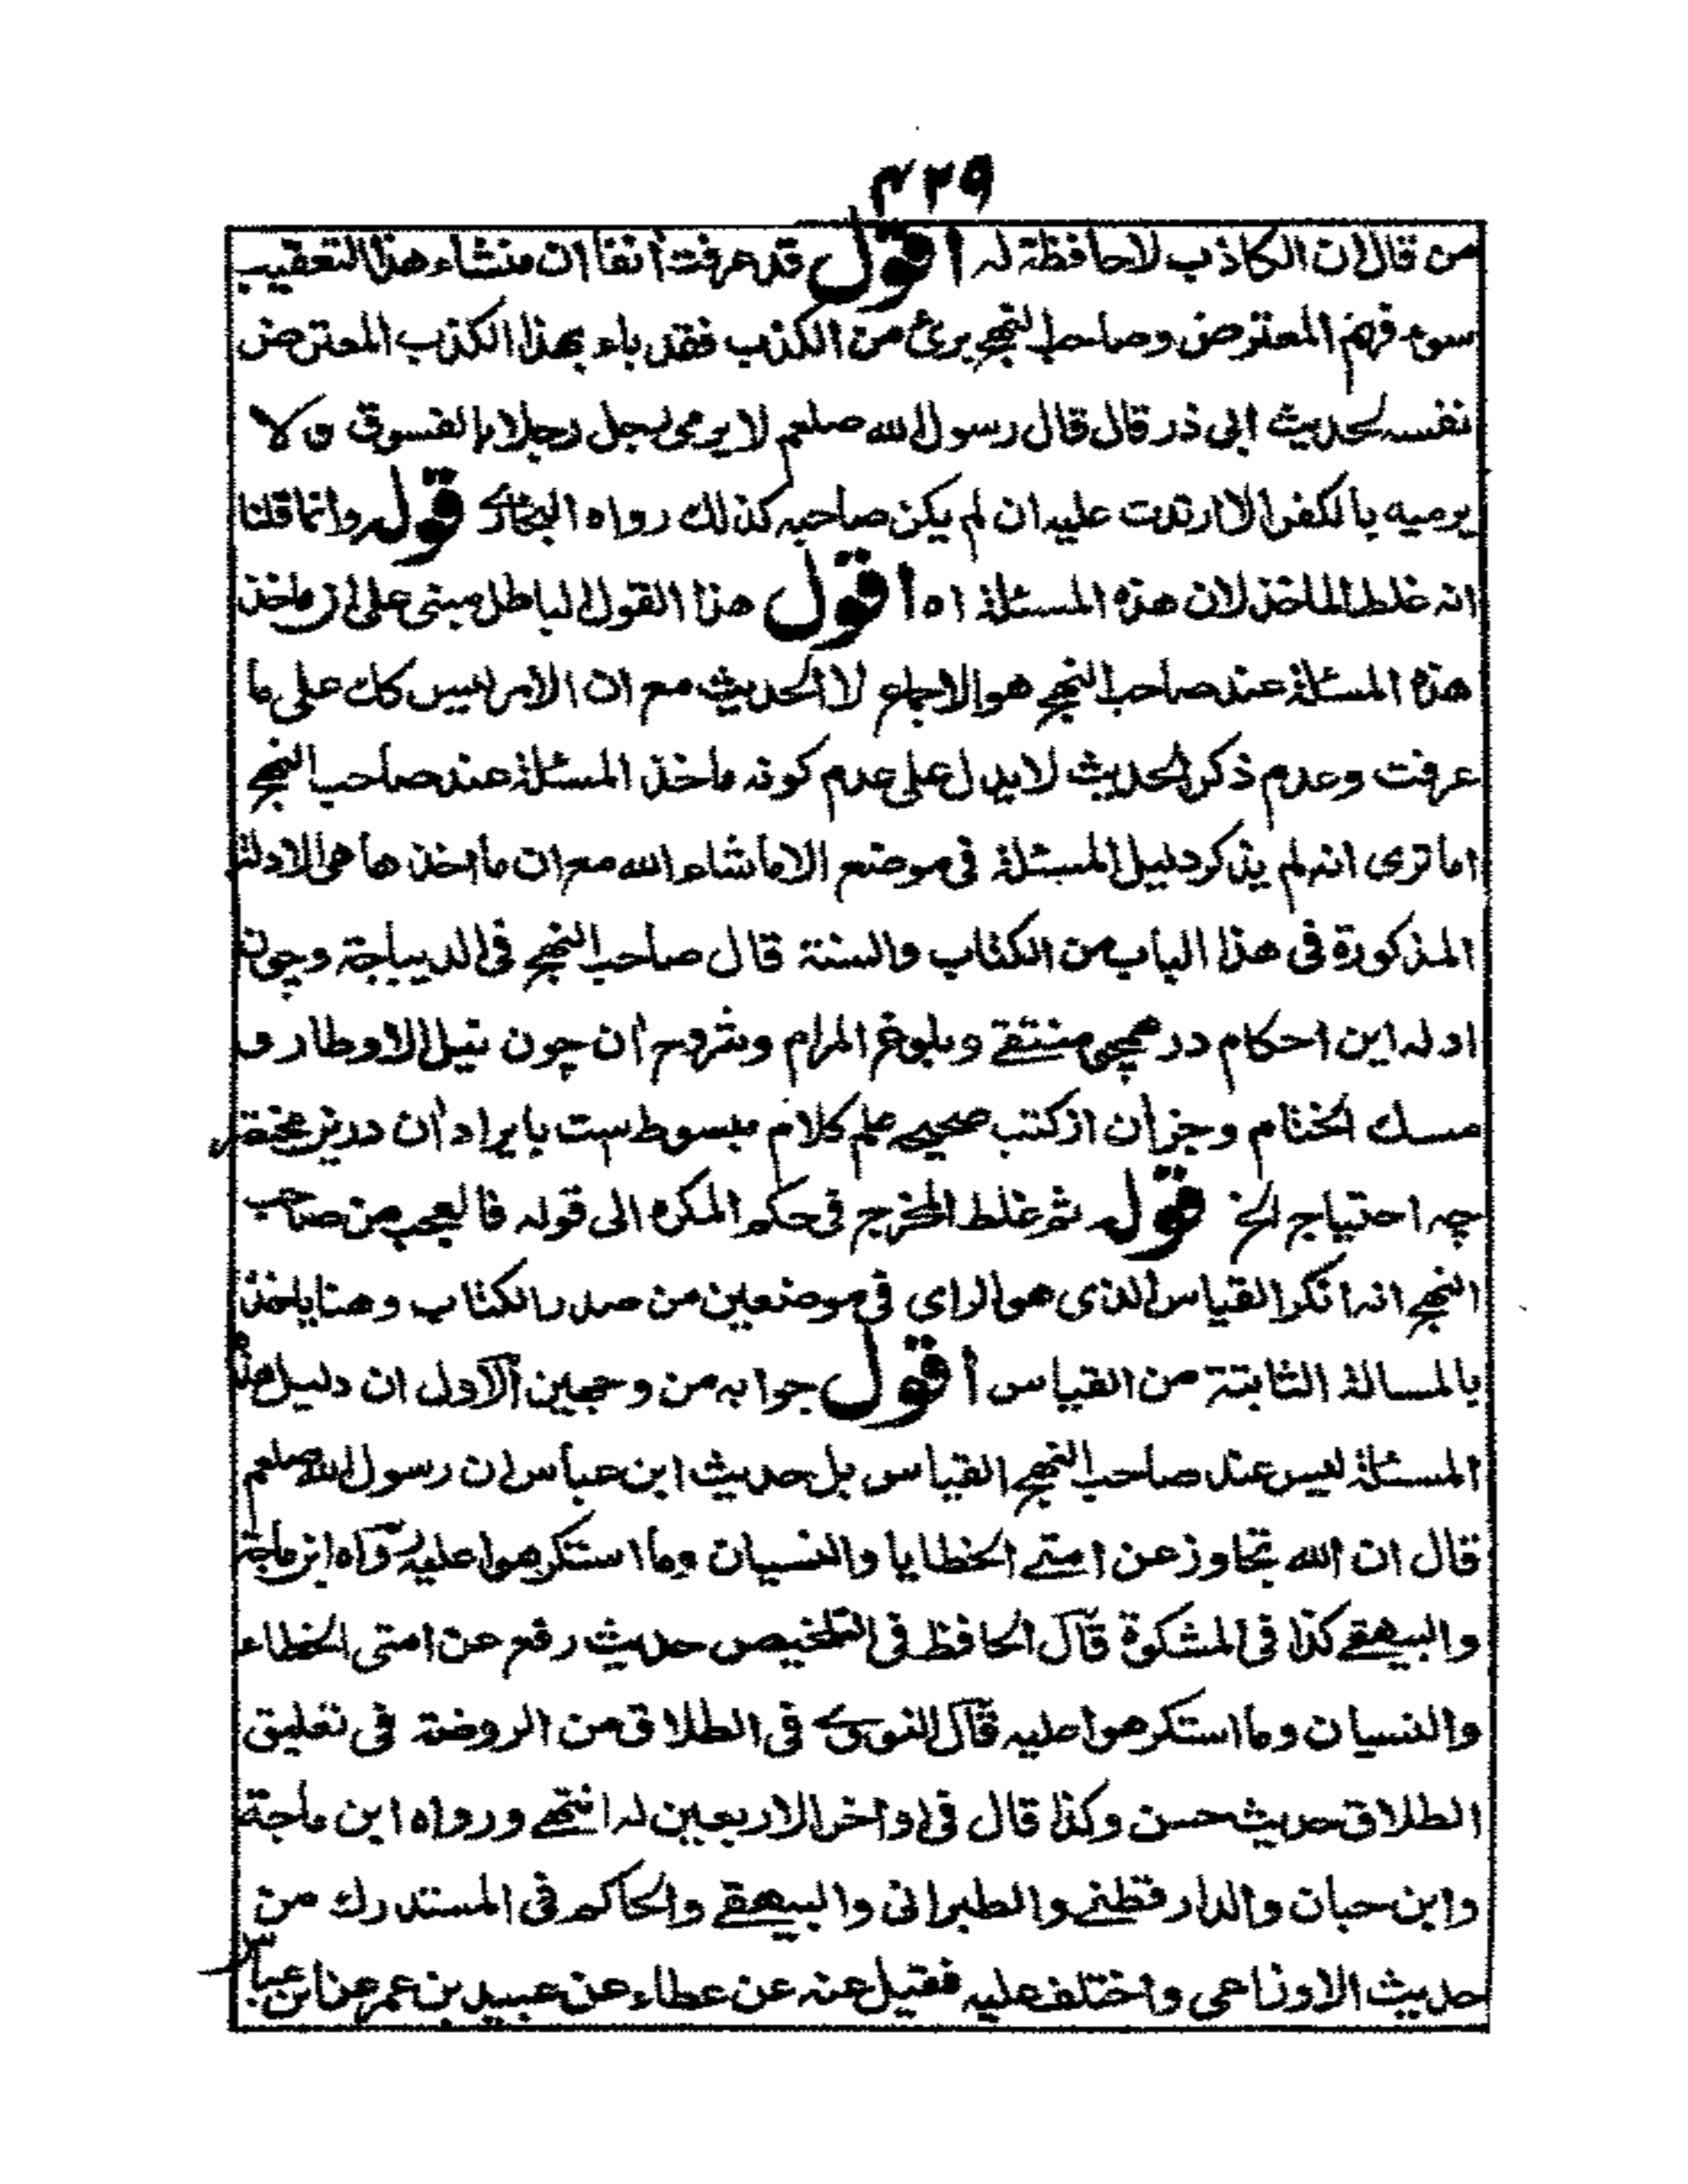 ۴۲۹
من قال ان الكاذب لاحافظة له اقول قد عرفت انفا ان منشاء هذا التعقيب
سوء فهم المعترض وصاحب النهج برئ من الكذب فقد باء بهذا الكذب المعترض
نفسه لحديث ابى ذر قال قال رسول الله صلعم لا يرمى رجل رجلا بالفسوق ولا
يرميه بالكفر الا ارتدت عليه ان لم يكن صاحبه كذلك رواه البخارى قوله وانما قلنا
انه غلط الماخذ لان هذه المسئلة اه اقول هذا القول الباطل مبنى على ان ماخذ
هذه المسئلة عند صاحب النهج هو الاجماع لا الحديث مع ان الامر ليس كك على ما
عرفت وعدم ذكر الحديث لا يدل على عدم كونه ماخذ المسئلة عند صاحب النهج
اما ترى انه لم يذكر دليل المسئلة فى موضع الا ماشاء الله مع ان ماخذ ها هى الادلة
المذكورة فى هذا الباب من الكتاب والسنة قال صاحب النهج فى الديباجة وچون
ادله اين احكام در همچو منتقے وبلوغ المرام وشروح آن چون نيل الاوطار و
مسك الختام وجزآن از كتب صحيحه علم كلام مبسوط ست بايراد آن درين مختصر
چه احتياج الخ قوله ثم غلط المخرج فى حكم المكره الى قوله فالعجب من صاحب
النهج انه انكر القياس الذى هو الراى فى موضعين من صدر الكتاب وهنا ياخذ
بالمسالة الثابتة من القياس أقول جوابه من وجهين الآول ان دليل هذه
المسئلة ليس عند صاحب النهج القياس بل حديث ابن عباس ان رسول الله صلعم
قال ان الله تجاوز عن امتے الخطايا والنسيان وما استكرهوا عليه رواه ابن ماجة
والبيهقے كذا فى المشكوة قال الحافظ فى التلخيص حديث رفع عن امتى الخطاء
والنسيان وما استكرهوا عليه قال النووے فى الطلاق من الروضة فى تعليق
الطلاق حديث حسن وكذا قال فى اواخر الاربعين له انتهے ورواه ابن ماجة
وابن حبان والدارقطنے والطبرانى والبيهقے والحاكم فى المستدرك من
حديث الاوزاعى واختلف عليه فقيل عنه عن عطاء عن عبيد بن عمر عن ابن عباس